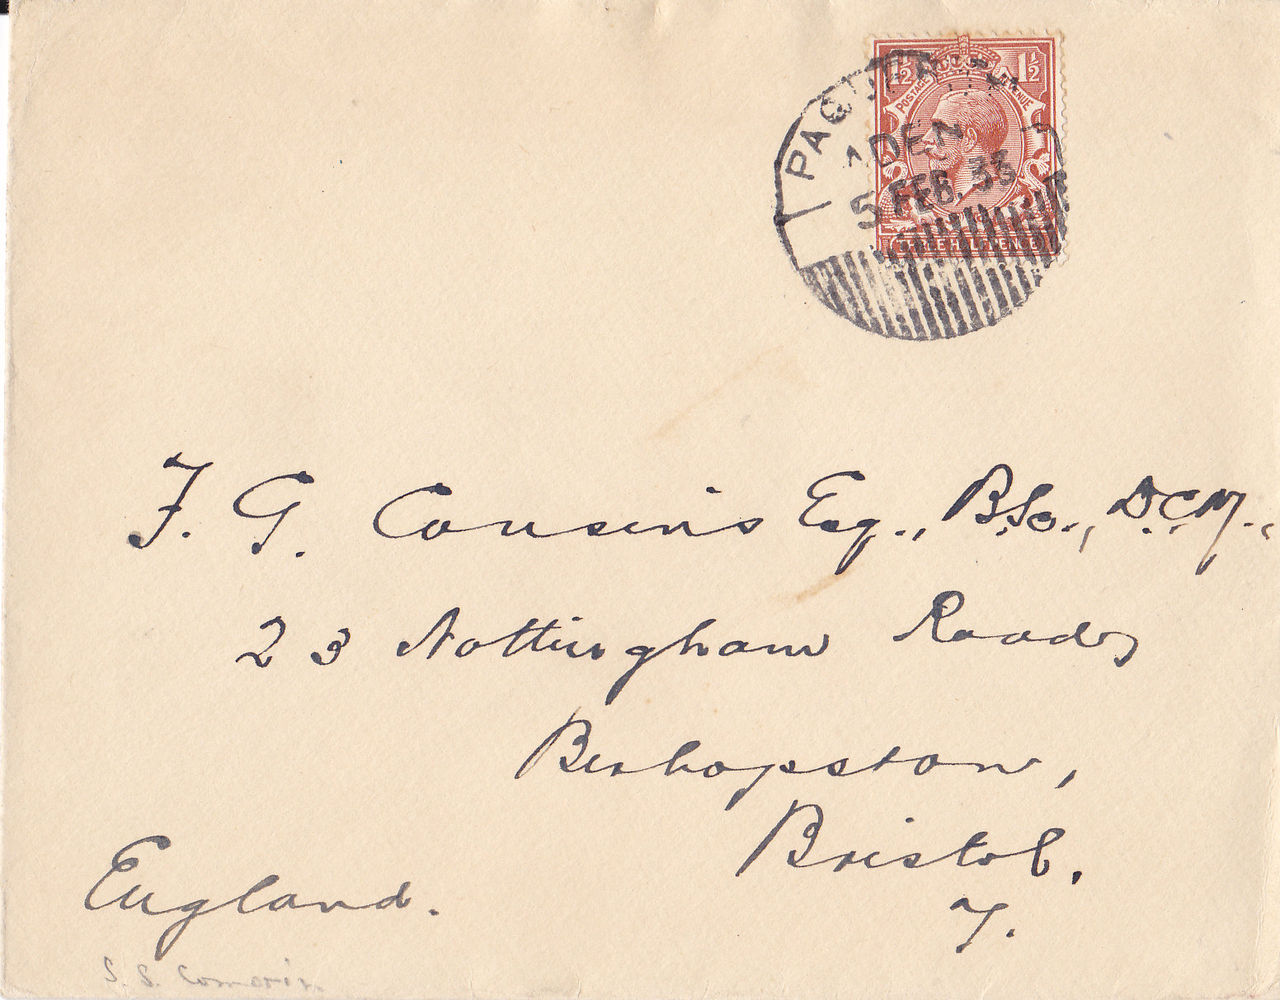 1½ 1½
POSTAGE REVENUE
THREE HALFPENCE
PAQUEBOT
ADEN
5 FEB. 33
F. G. Cousins Esq., B.Sc., D.C.M.,
23 Nottingham Road,
Bishopston,
Bristol.
7.
England.
S.S. Comorin